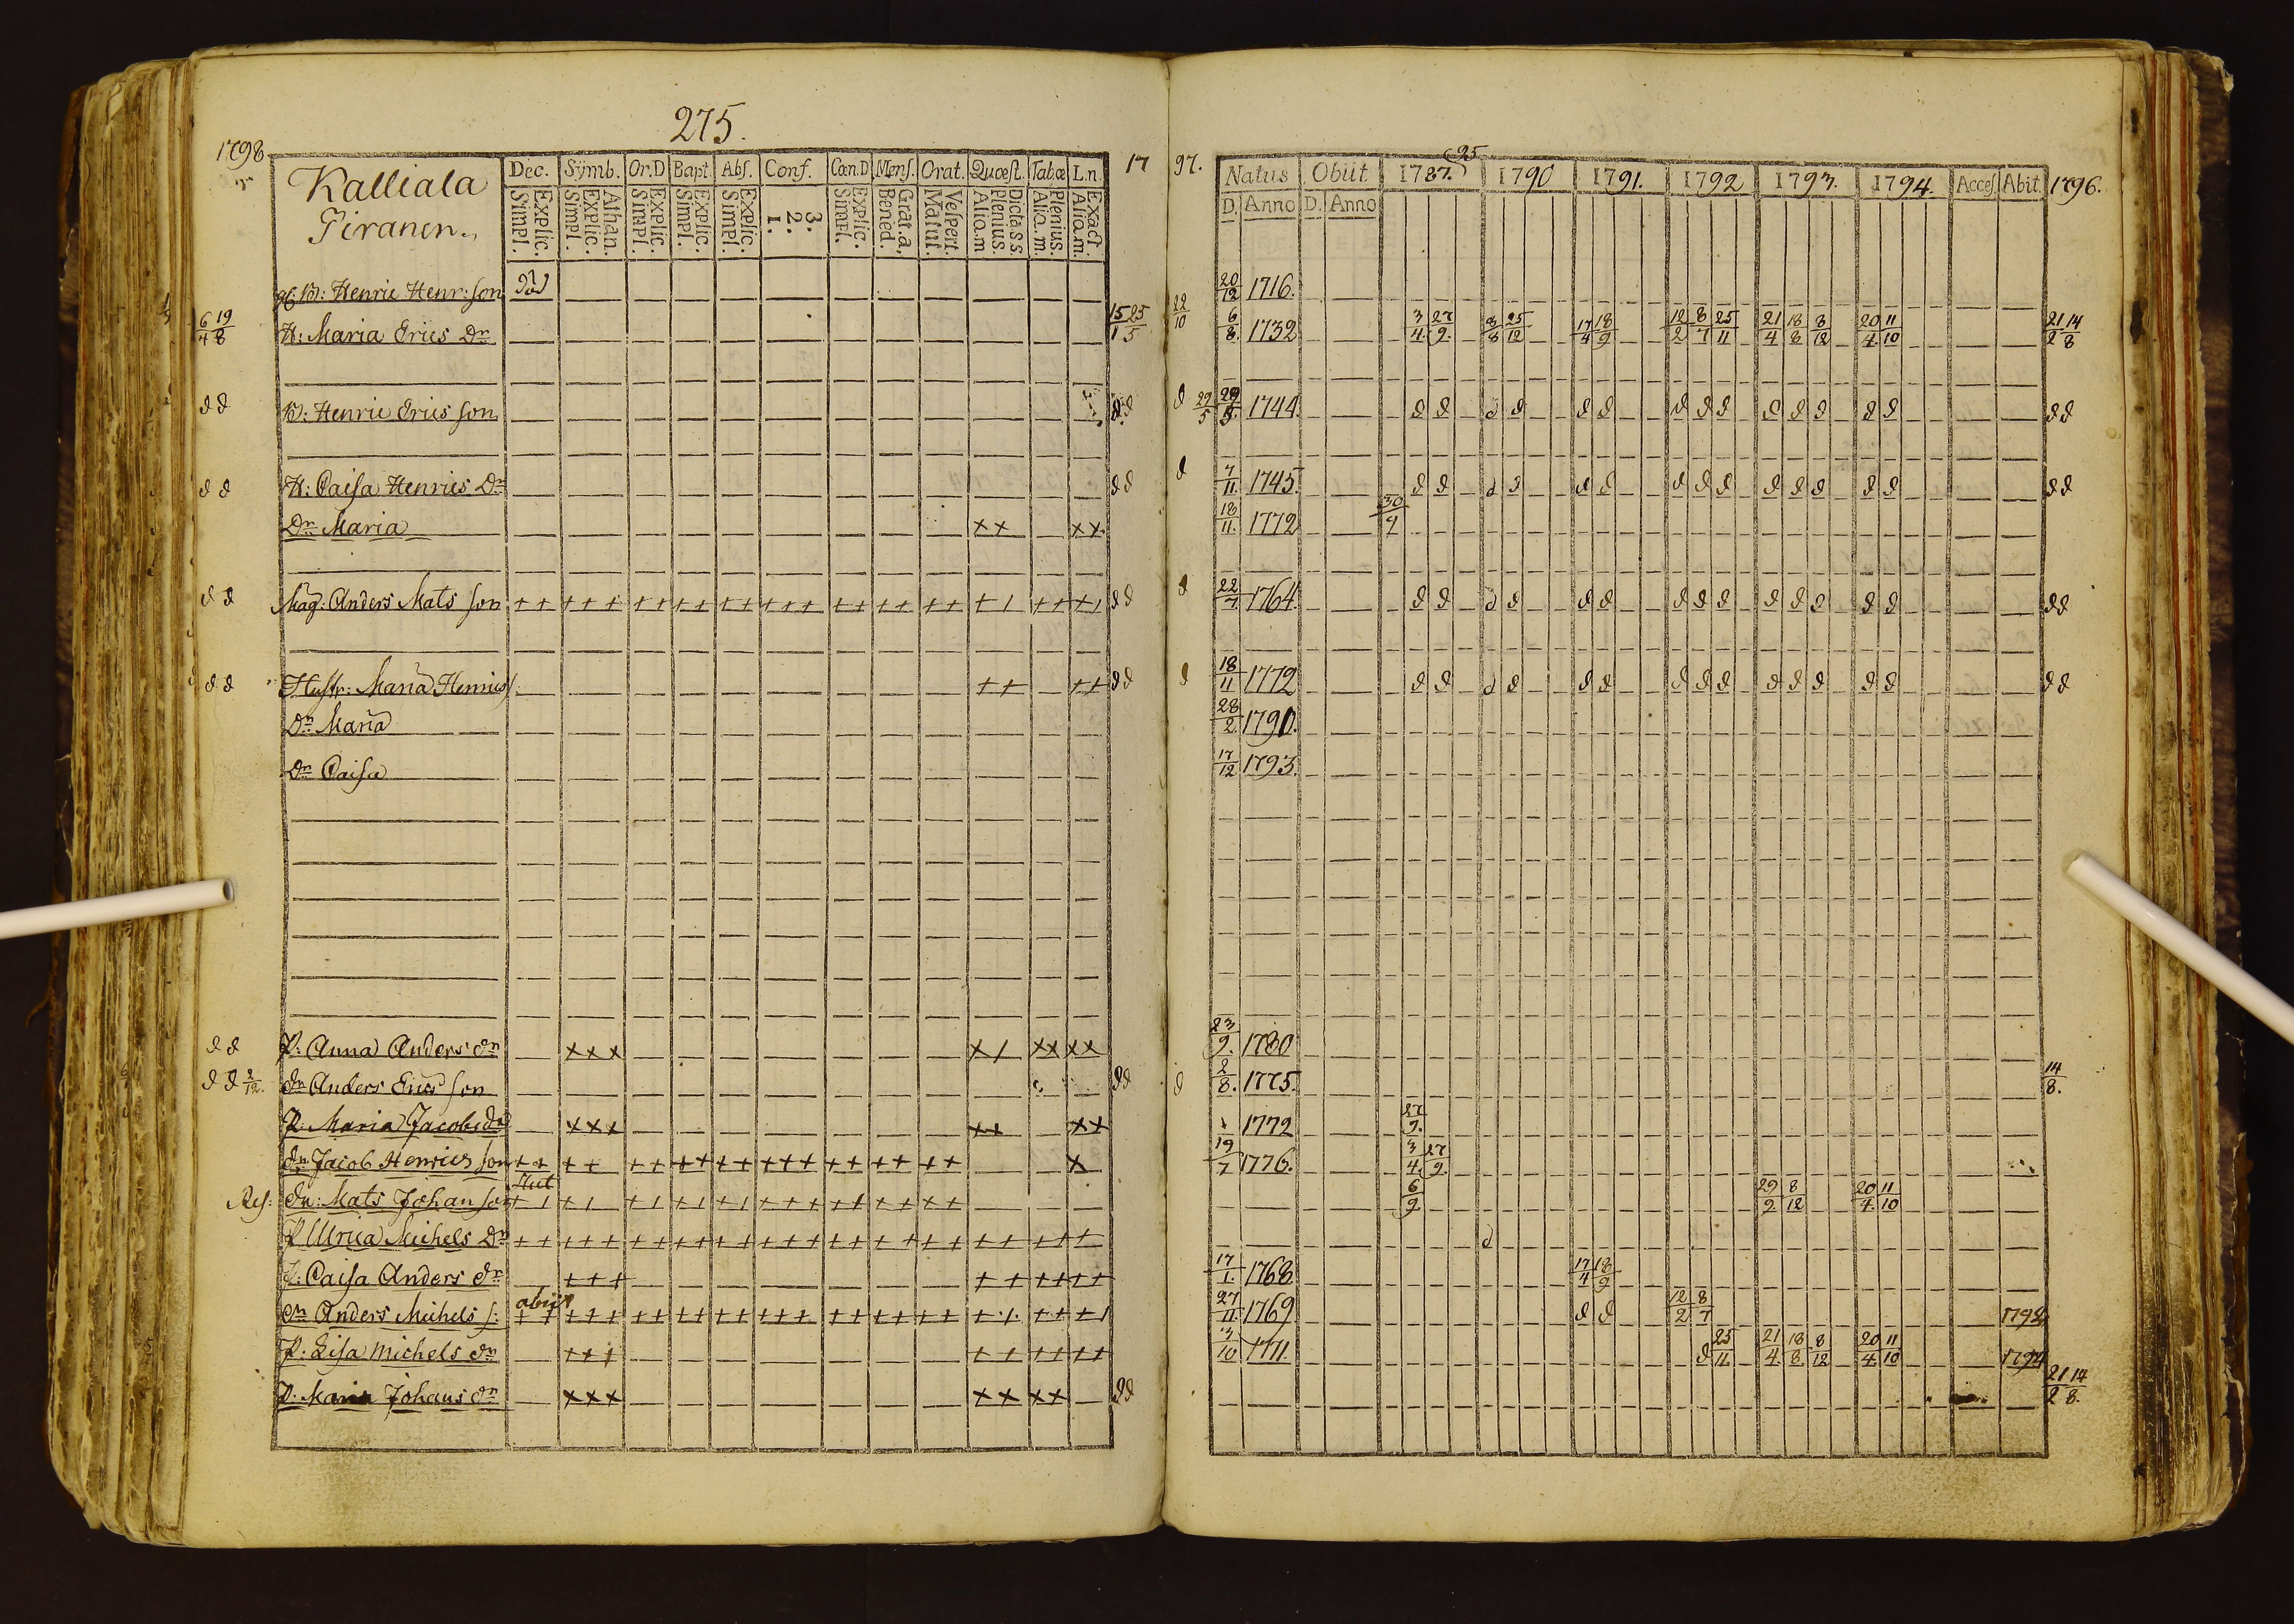 275.
1798
Kalliala
Piranen.
Dec. Symb. Or.D Bapt. Abſ. Conf. Cœn.D Menſ. Orat. Quœſt. Tabœ L.n.
Explic. Simpl. Athan. Explic. Simpl. Explic. Simpl. Explic. Simpl. Explic. Simpl. 3. 2. 1. Explic. Simpl. Grat.a. Bened. Veſpert. Matut. Dictass Plenius. Alio.m Plenius. Alio.m. Exact Alio.m.
17 97.
Natus Obiit 1787. 95 1790 1791. 1792 1793. 1794. Acceſ Abit. 1796.
D. Anno D. Anno
B: Henric Henr: ſon 20/12 1716.
6/4 19/8 H: Maria Erics Dr 15/1 25/5 22/10 6/8. 1732 3/4. 27/9. 8/8 25/12 17/4 18/9 12/2 8/7 25/11 21/4 18/8 8/12 20/4 11/10 21/2 14/8
d d B: Henric Erics ſon d d d 29/5 1744 d d d d d d d d d d d d d d d d
d d H: Caiſa Henrics Dr d d d 7/11. 1745. d d d d d d d d d d d d d d d d
Dr Maria ×× ×× 18/11. 1772 30/9
d d Mag: Anders Mats ſon ++ +++ ++ ++ ++ +++ ++ ++ ++ +/ ++ +/ d d d 22/7 1764 d d d d d d d d d d d d d d d d
d d Huſtr: Maria Henrics ++ ++ d d d 18/11 1772 d d d d d d d d d d d d d d d d
Dr Maria 28/2. 1790.
Dr Caiſa 17/12 1793.
d d P: Anna Anders dr ××× ×/ ×× ×× 23/9. 1780
d d 2/12. dn Anders Erics ſon d d d 2/8. 1775. 14/8.
P. Maria Jacobs dr ××× ×× ×× 1772 27/9.
dn. Jacob Henrics ſon ++ ++ ++ ++ ++ +++ ++ ++ ++ × 19/7 1776. 3/4. 27/9.
dn: Mats Johan ſon +/ +/ +/ +/ +/ +++ +/ ×× ×× 6/9 29/9 8/12 20/4 11/10
P Ulrica Michels Dr ++ +++ ++ ++ ++ +++ ++ ++ ++ ++ ++ + d
P: Caiſa Anders dr +++ ++ ++ ++ 17/1. 1768 17/4 18/9
abiit
dn Anders Michels ſ: ++ +++ ++ ++ ++ +++ ++ ++ ++ +/ ++ +/ 27/11. 1769 d d 12/2 8/7 1792
P: Liſa Michels dr +++ ++ ++ ++ 3/10 1771. d 25/11 21/4 18/8. 8/12 20/4 11/10 1794
P. Maria Johans dr ××× ×× ×× d d 21/2 14/8.